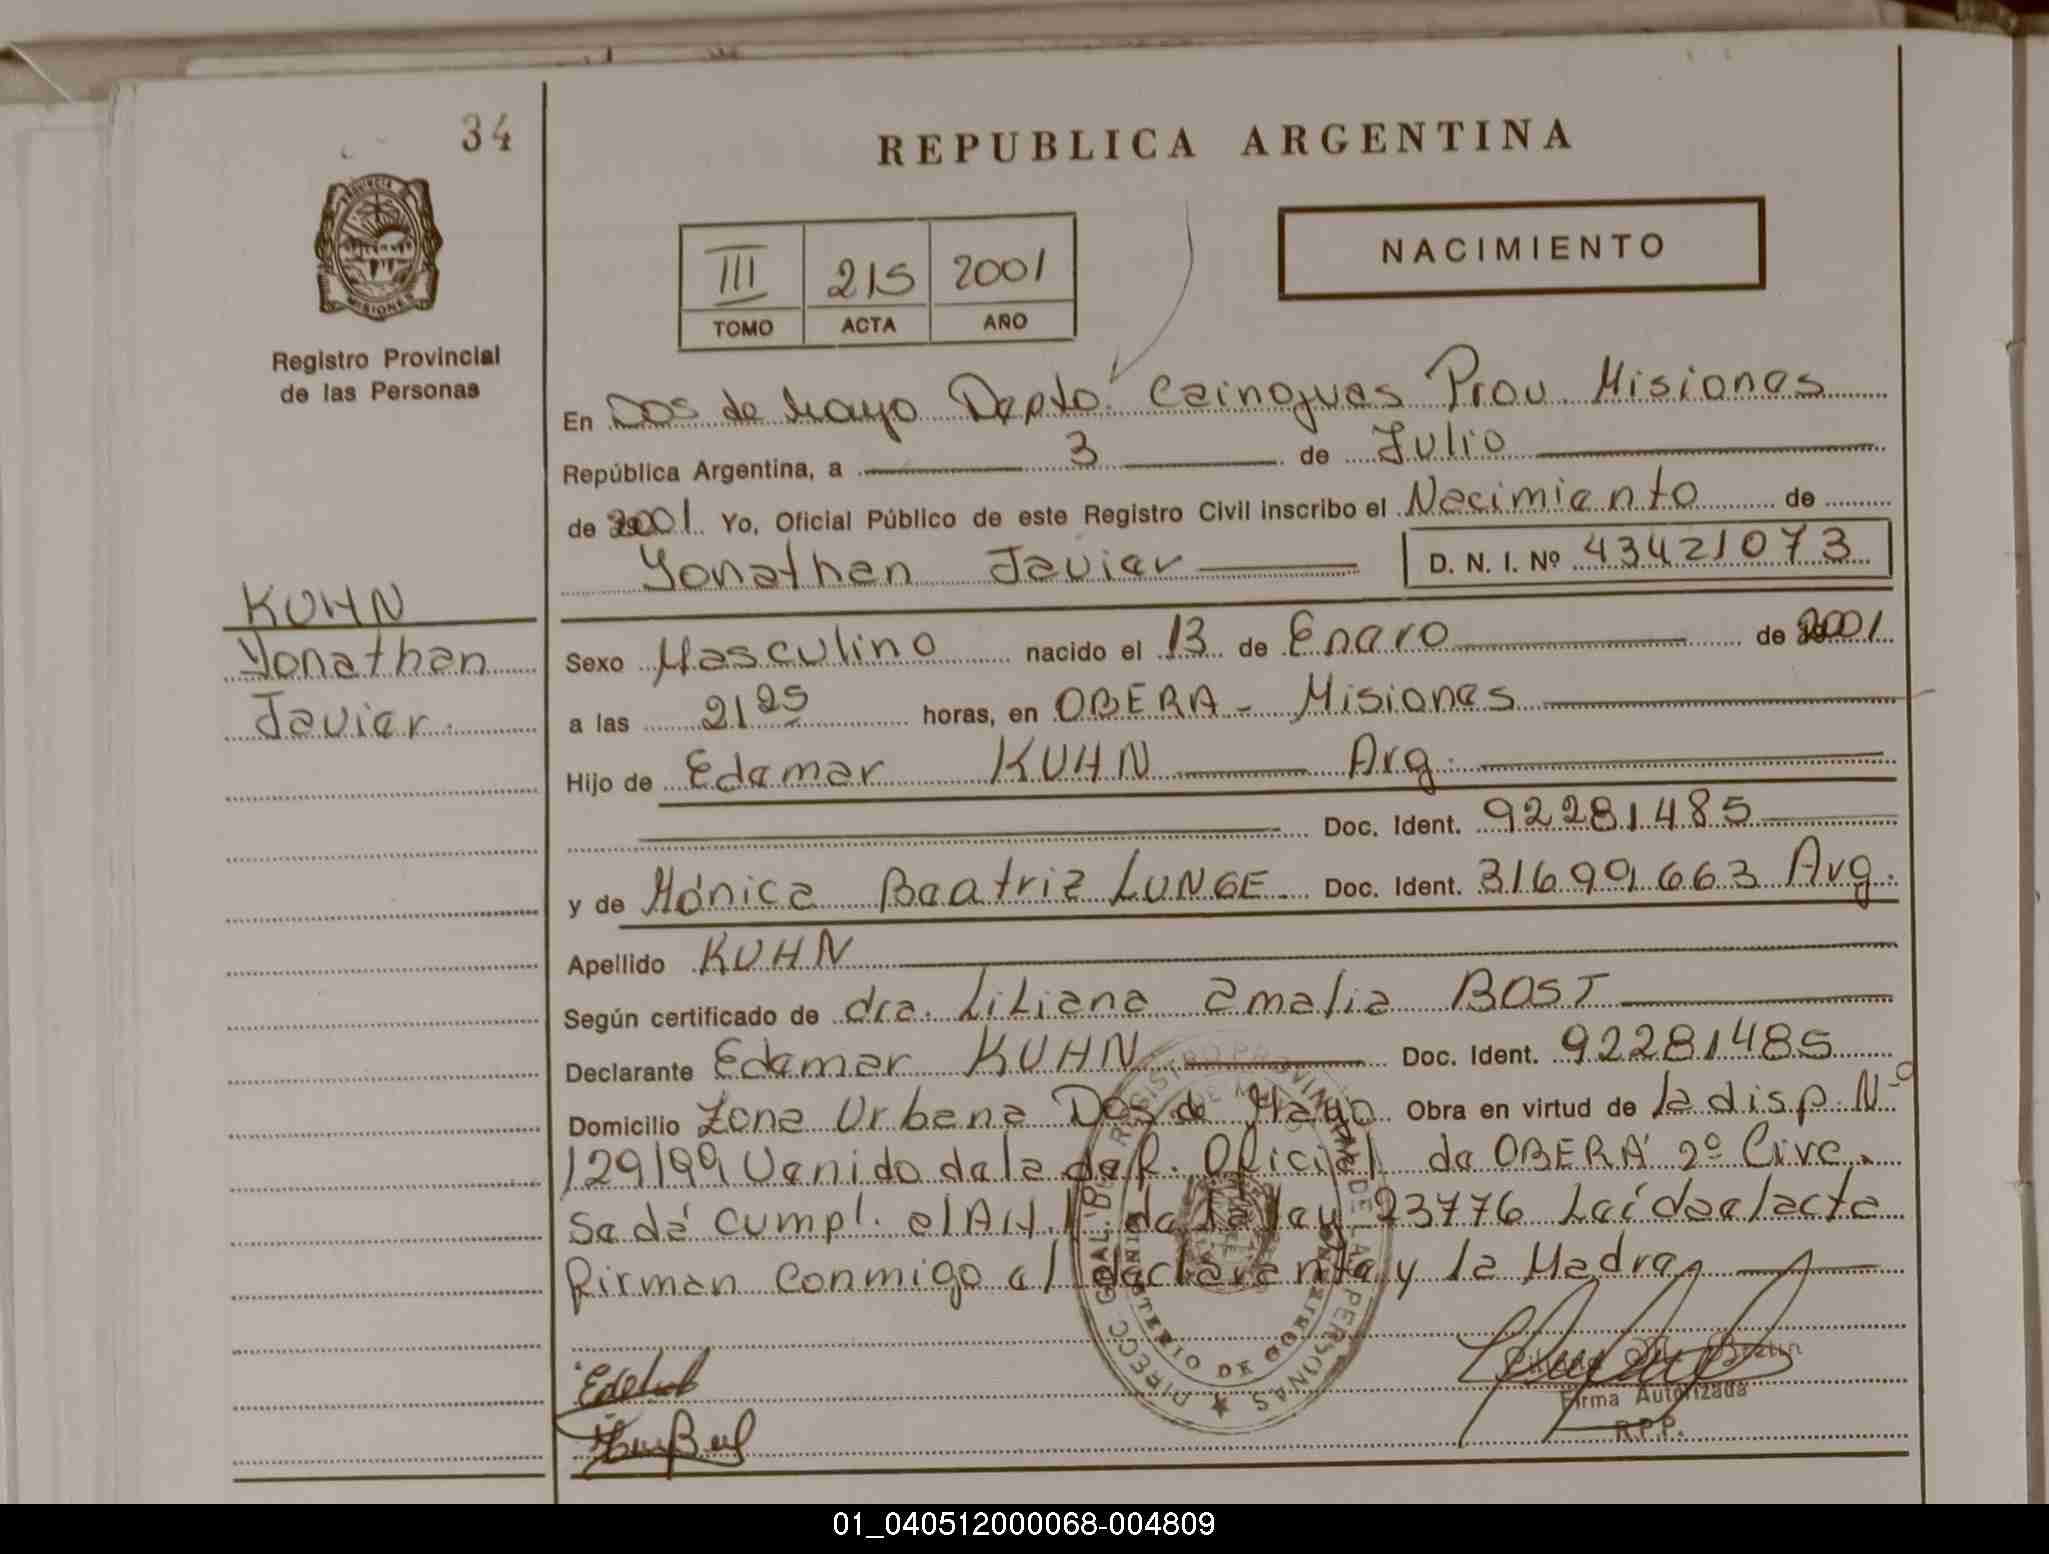 34
REPUBLICA ARGENTINA
PROVINCIA DE
MISIONES
Registro Provincial
de las Personas
NACIMIENTO
III 215 2001
TOMO ACTA AÑO
En Dos de Mayo Depto. Cainguas Prov. Misiones
República Argentina, a 3 de Julio
de 2001 Yo, Oficial Público de este Registro Civil inscribo el Nacimiento de
Yonathan Javier D. N. I. Nº 43421073
KUHN
Yonathan
Javier.
Sexo Masculino nacido el 13 de Enero de 2001
a las 21 25 horas, en OBERA - Misiones
Hijo de Edemar KUHN Arg.
Doc. Ident. 92281485
y de Mónica Beatriz LUNGE Doc. Ident. 31699663 Arg.
Apellido KUHN
Según certificado de dra. Liliana amalia BOST
Declarante Edemar KUHN Doc. Ident. 92281485
Domicilio Zona Urbana Dos de Mayo Obra en virtud de la disp. Nº
129/99 Venido de la del. Oficial de OBERÁ 2º Circ.
se dá cumpl. el Art. de la ley 23776 Leída el acta
firman conmigo el declarante y la Madre
DIRECC. GRAL. DEL REGISTRO PROVINCIAL DE LAS PERSONAS
MINISTERIO DE GOBIERNO
Firma Autorizada
R.P.P.
01_040512000068-004809